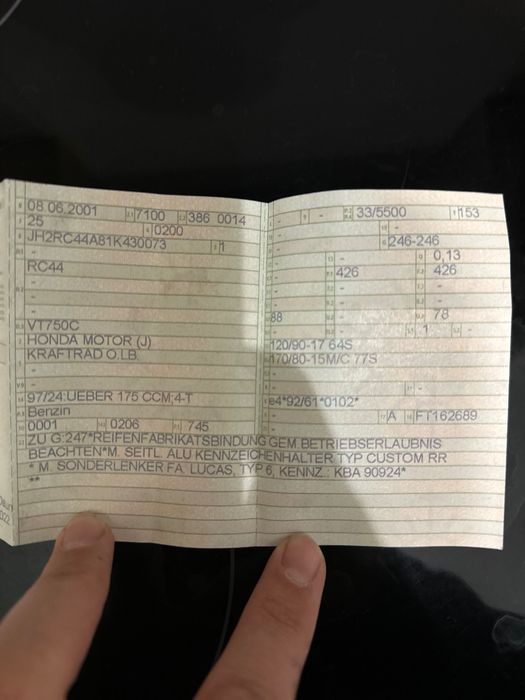 08.06.2001 7100 386 0014 - - 33/5500 153
25 0200 - -
JH2RC44A81K430073 1 - 246-246
- - 0,13
RC44 - 426 426
- - - -
- - - -
- 88 - 78
VT750C - - 1 -
HONDA MOTOR (J) 120/90-17 64S
KRAFTRAD O.LB. 170/80-15M/C 77S
- -
- - -
97/24:UEBER 175 CCM;4-T e4*92/61*0102*
Benzin - A FT162689
0001 0206 745
ZU G:247*REIFENFABRIKATSBINDUNG GEM.BETRIEBSERLAUBNIS
BEACHTEN*M. SEITL. ALU KENNZEICHENHALTER TYP CUSTOM RR
* M. SONDERLENKER FA. LUCAS, TYP 6, KENNZ.: KBA 90924*
**